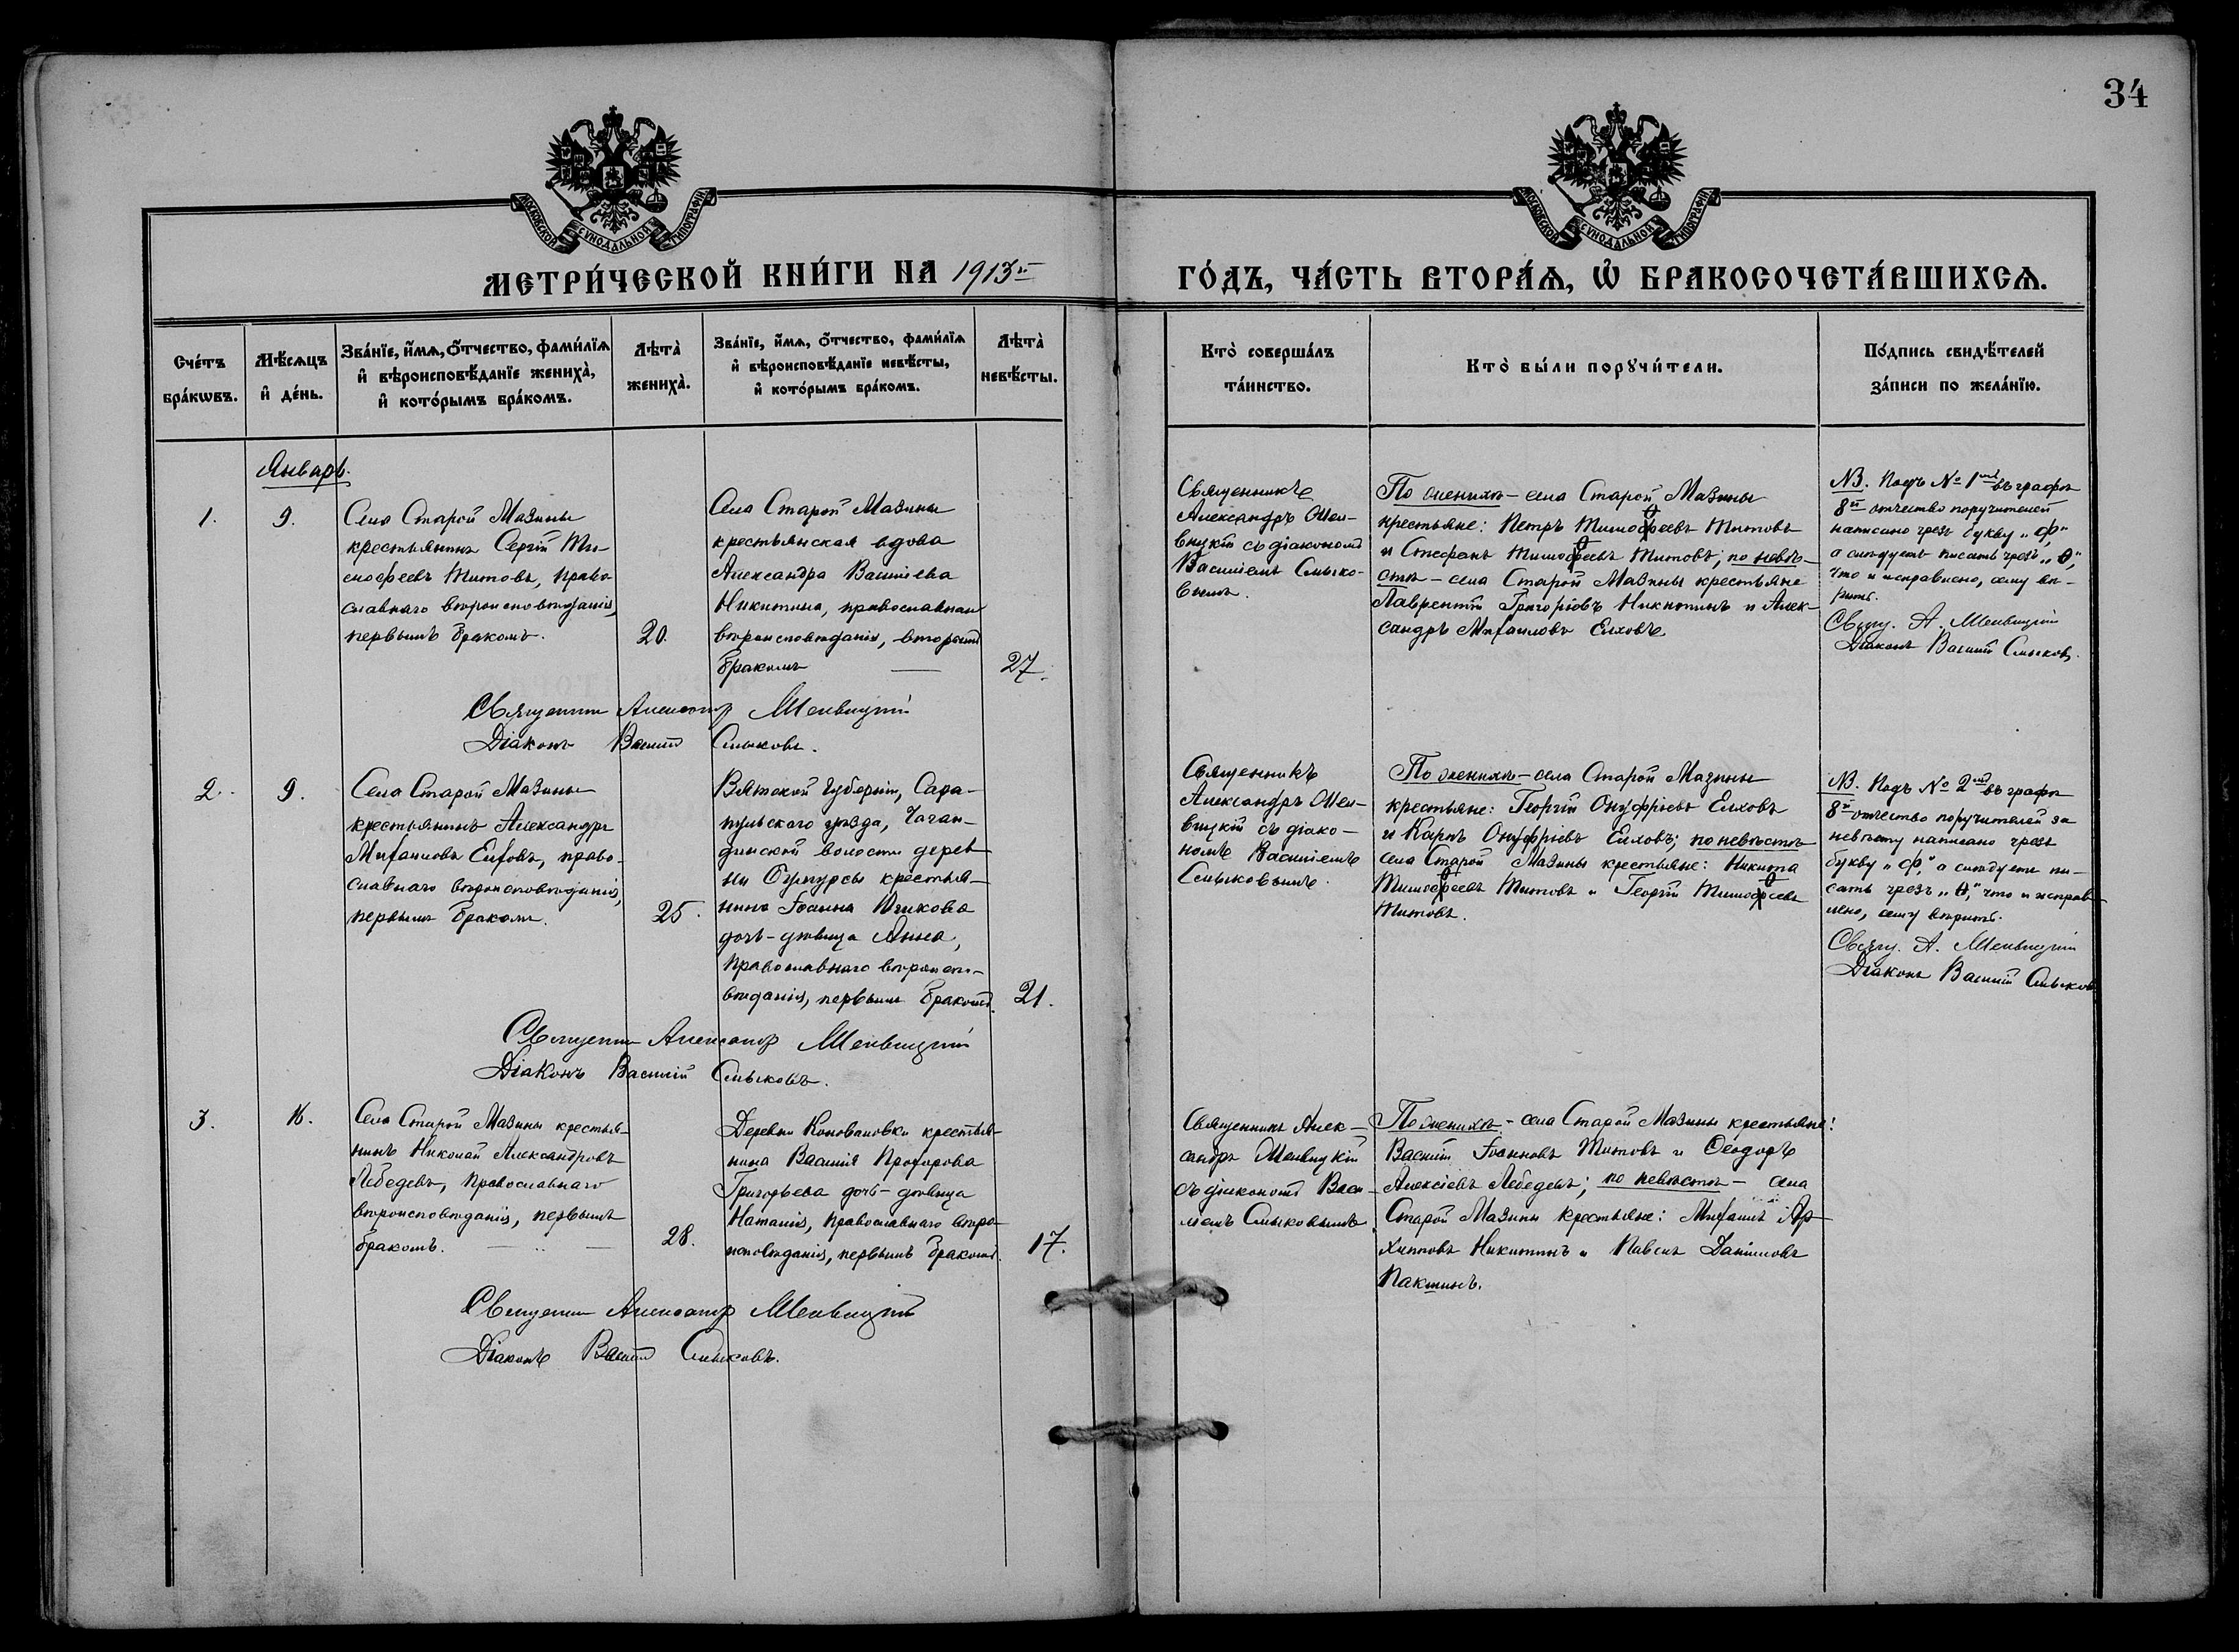 34
МОСКОВСКОЙ СѴНОДАЛЬНОЙ ТИПОГРАФІИ
МОСКОВСКОЙ СѴНОДАЛЬНОЙ ТИПОГРАФІИ
МЕТРИ́ЧЕСКОЙ КНИ́ГИ НА 1913й
ГО́ДЪ, ЧА́СТЬ ВТОРА́Ѧ, Ѡ҆ БРАКОСОЧЕТА́ВШИХСѦ.
Сче́тъ
бра́кѡвъ.
Мѣ́сѧцъ
и҆ де́нь.
Зва́нїе, и҆́мѧ, ѻ҆́тчество, фамилїѧ
и҆ вѣроисповѣ́данїе жениха̀,
и҆ кото́рымъ бра́комъ.
Лѣта̀
жениха̀.
Зва́нїе, и҆́мѧ, ѻ҆́тчество, фамилїѧ
и҆ вѣроисповѣ́данїе невѣ́сты,
и҆ кото́рымъ бра́комъ.
Лѣта̀
невѣ́сты.
Кто̀ соверша́лъ
та́инство.
Кто̀ бы́ли порꙋчи́тели.
По́дпись свидѣ́телей
за́писи по жела́нїю.
Январь.
1.
9.
Села Старой Мазины
крестьянинъ Сергій Ти-
моѳеевъ Титовъ, право-
славнаго вѣроисповѣданія,
первымъ бракомъ.
20.
Села Старой Мазины
крестьянская вдова
Александра Васильева
Никитина, православнаго
вѣроисповѣданія, вторымъ
бракомъ
27.
Священникъ
Александръ Мен-
вицкій съ діакономъ
Василіемъ Смыко-
вымъ.
По женихѣ – села Старой Мазины
крестьяне: Петръ Тимоѳеевъ Титовъ
и Стефанъ Тимоѳеевъ Титовъ; по невѣ-
стѣ – села Старой Мазины крестьяне
Лаврентій Григоріевъ Никитинъ и Алек-
сандръ Михаиловъ Елховъ.
NB. Подъ № 1мъ въ графѣ
8й отчество поручителей
написано чрезъ букву „ф“,
а слѣдуетъ писать чрезъ „ѳ“,
что и исправлено, сему вѣ-
рить.
Свящ. А. Менвицкій
Діаконъ Василій Смыковъ.
Священникъ Александръ Менвицкій
Діаконъ Василій Смыковъ.
2.
9.
Села Старой Мазины
крестьянинъ Александръ
Михаиловъ Елховъ, право-
славнаго вѣроисповѣданія,
первымъ бракомъ.
25.
Вятской губерніи, Сара-
пульскаго уѣзда,
волости дерев-
ни крестья-
нина Іоанна
дочь-дѣвица Анна,
православнаго вѣроиспо-
вѣданія, первымъ бракомъ.
21.
Священникъ
Александръ Мен-
вицкій съ діако-
номъ Василіемъ
Смыковымъ.
По женихѣ – села Старой Мазины
крестьяне: Георгій Онуфріевъ Елховъ
и Карпъ Онуфріевъ Елховъ; по невѣстѣ
села Старой Мазины крестьяне: Никита
Тимоѳеевъ Титовъ и Георгій Тимоѳеевъ
Титовъ.
NB. Подъ № 2мъ въ графѣ
8й отчество поручителей за
невѣсту написано чрезъ
букву „ф“, а слѣдуетъ пи-
сать чрезъ „ѳ“, что и исправ-
лено, сему вѣрить.
Свящ. А. Менвицкій
Діаконъ Василій Смыковъ
Священникъ Александръ Менвицкій
Діаконъ Василій Смыковъ.
3.
16.
Села Старой Мазины крестья-
нинъ Николай Александровъ
Лебедевъ, православнаго
вѣроисповѣданія, первымъ
бракомъ.
28.
Деревни Коноваловки крестья-
нина Василія Прохорова
Григорьева дочь-дѣвица
Наталія, православнаго вѣро-
исповѣданія, первымъ бракомъ.
17.
Священникъ Алек-
сандръ Менвицкій
съ діакономъ Васи-
ліемъ Смыковымъ.
По женихѣ – села Старой Мазины крестьяне:
Василій Іоанновъ Титовъ и Ѳеодоръ
Алексіевъ Лебедевъ; по невѣстѣ – села
Старой Мазины крестьяне: Михаилъ Ар-
хиповъ Никитинъ и Павелъ Даніиловъ
Пакшинъ.
Священникъ Александръ Менвицкій
Діаконъ Василій Смыковъ.